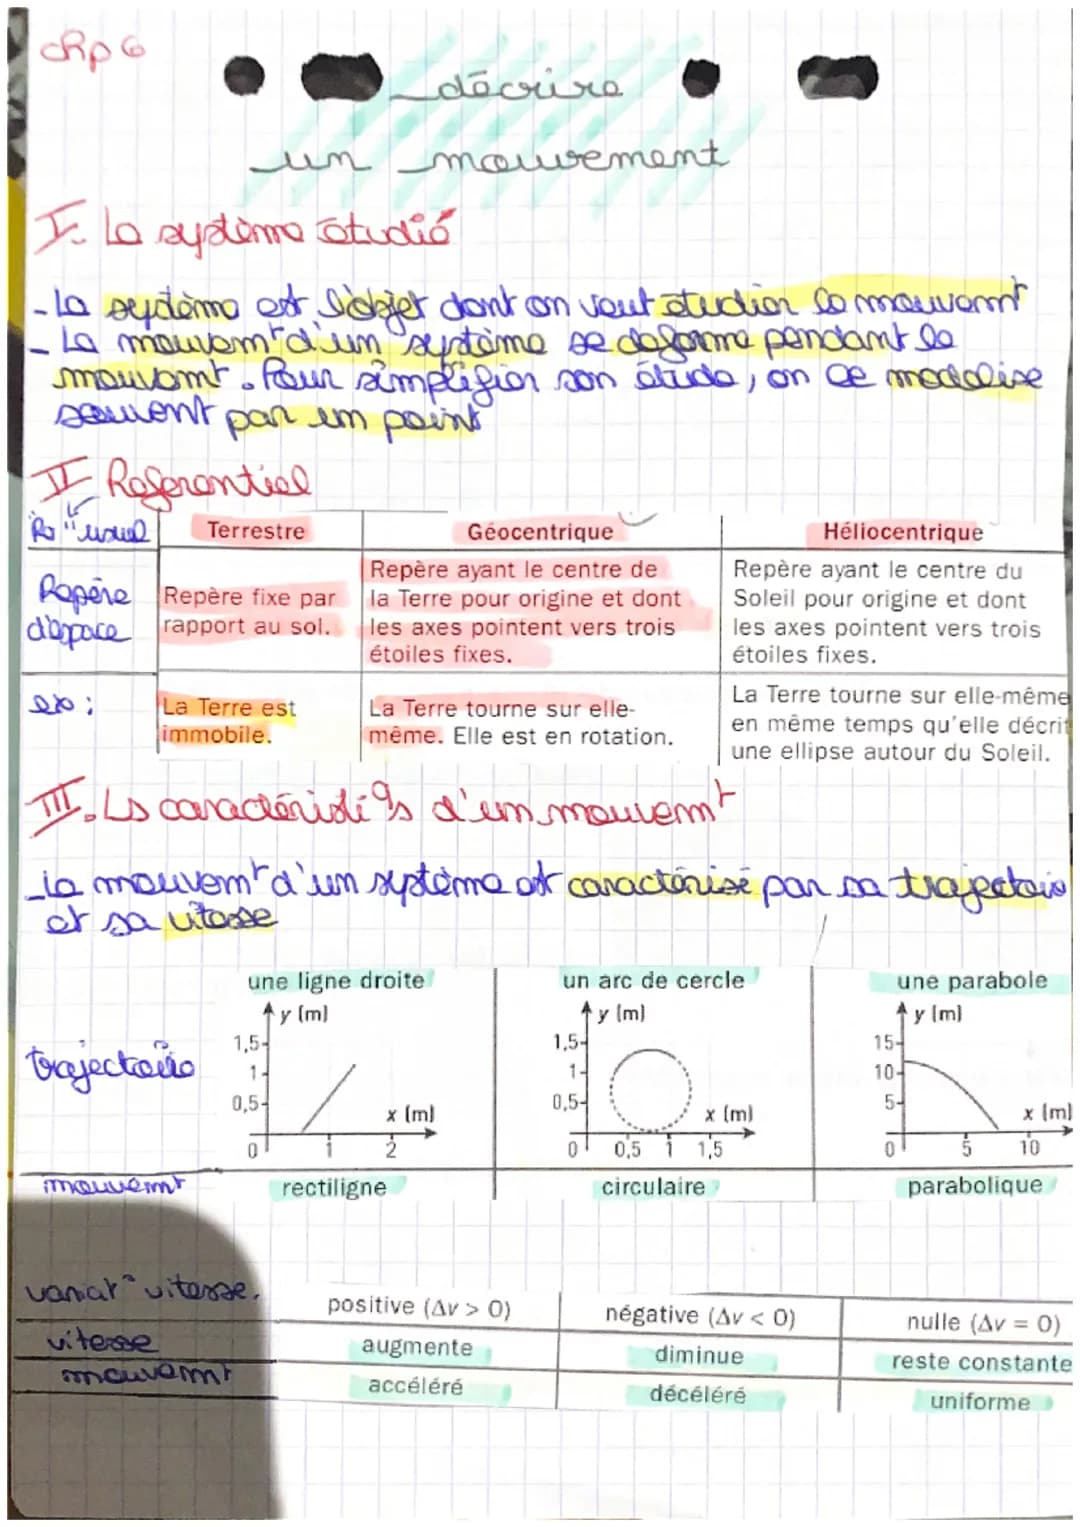 chp 6
décrire
un mouvement
I. Le système étudié
- Le système est l'objet dont on veut étudier le mouvemt
- Le mouvemt d'un système se déforme pendant le
mouvemt. Pour simplifier son étude, on le modélise
souvent par un point
II Referentiel
Ro "usuel Terrestre Géocentrique Héliocentrique
Repère d'espace
Repère fixe par
rapport au sol.
Repère ayant le centre de
la Terre pour origine et dont
les axes pointent vers trois
étoiles fixes.
Repère ayant le centre du
Soleil pour origine et dont
les axes pointent vers trois
étoiles fixes.
ex :
La Terre est
immobile.
La Terre tourne sur elle-
même. Elle est en rotation.
La Terre tourne sur elle-même
en même temps qu'elle décrit
une ellipse autour du Soleil.
III. Ls caractéristiqs d'un mouvemt
- Le mouvemt d'un système est caractérisé par sa trajectoire
et sa vitesse
trajectoire
une ligne droite
y (m)
1,5
1
0,5
x (m)
0 1 2
un arc de cercle
y (m)
1,5
1
0,5
x (m)
0 0,5 1 1,5
une parabole
y (m)
15
10
5
x (m)
0 5 10
mouvemt rectiligne circulaire parabolique
variat° vitesse. positive (Δv > 0) négative (Δv < 0) nulle (Δv = 0)
vitesse augmente diminue reste constante
mouvemt accéléré décéléré uniforme